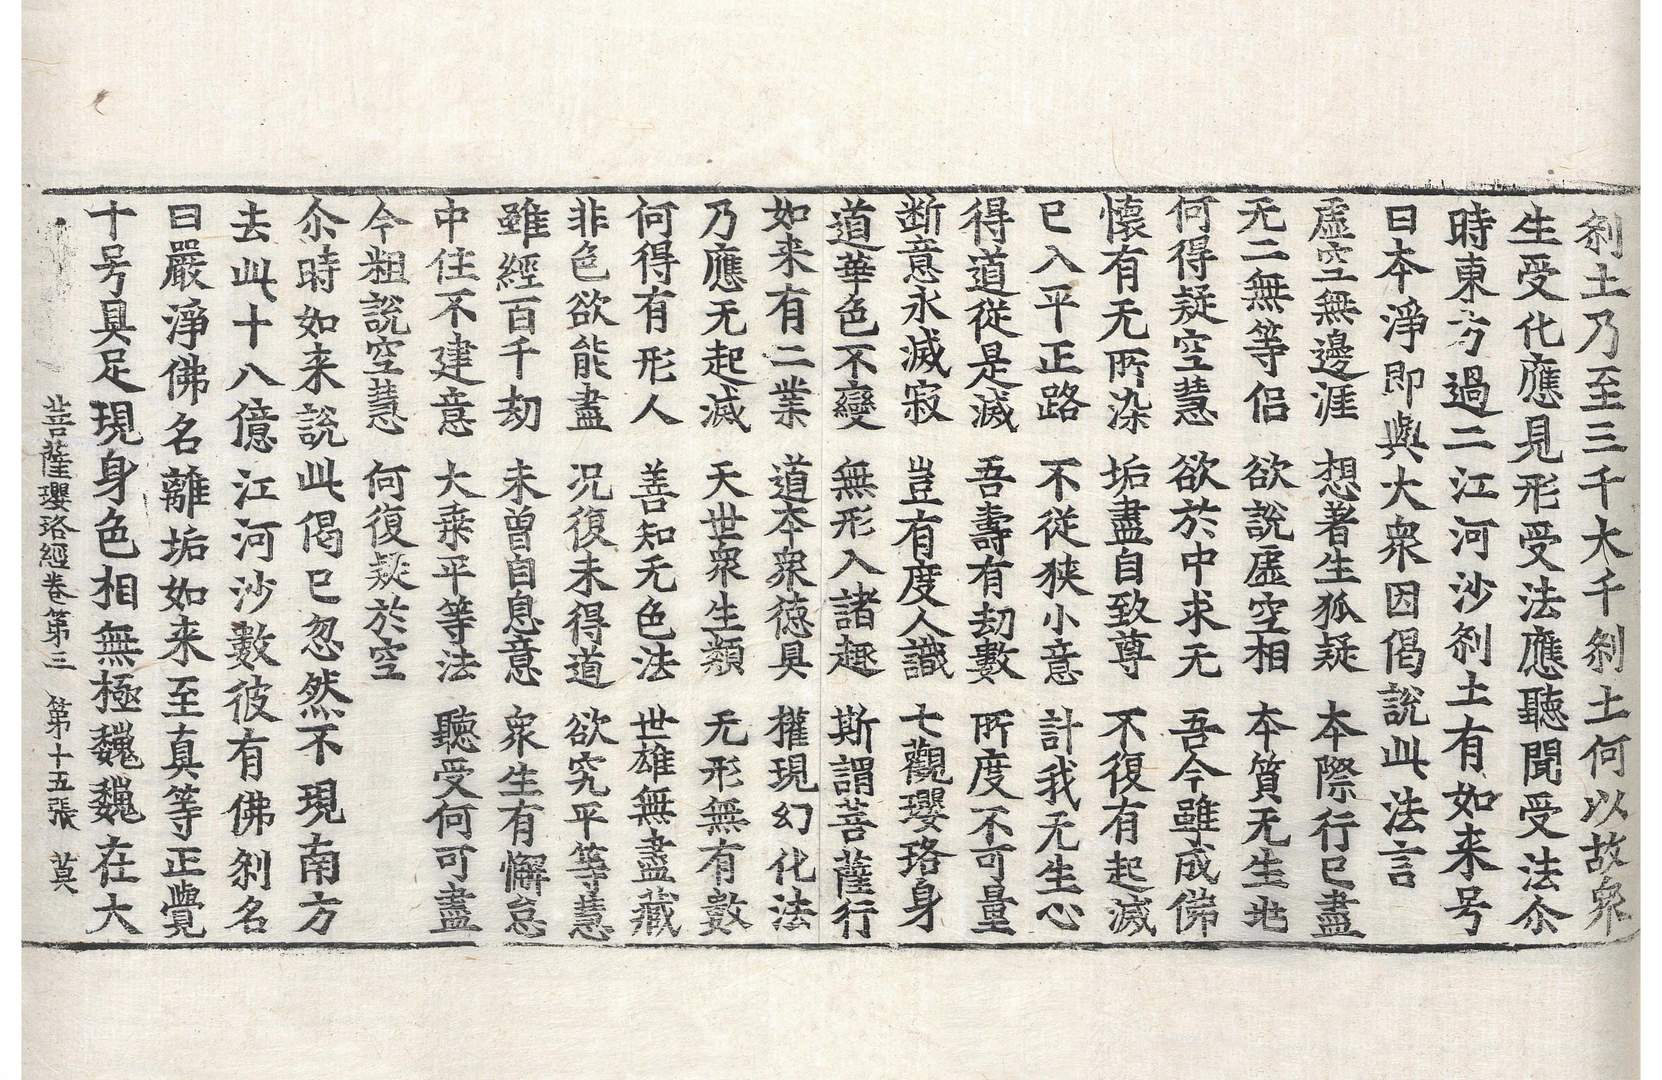 刹土乃至三千大千刹土何以故衆
生受化應見形受法應聽聞受法尒
時東方過二江河沙刹土有如来号
曰本淨即與大衆因偈說此法言
虛空無邊涯　想著生狐疑　本際行已盡
无二無等侣　欲說虛空相　本質无生地
何得疑空慧　欲於中求无　吾今雖成佛
懷有无所染　垢盡自致尊　不復有起滅
已入平正路　不從狭小意　計我无生心
得道從是滅　吾壽有劫數　所度不可量
断意永滅寂　豈有度人識　七觀瓔珞身
道華色不變　無形入諸趣　斯謂菩薩行
如来有二業　道本衆德具　權現幻化法
乃應无起滅　天世衆生類　无形無有數
何得有形人　善知无色法　世雄無盡藏
非色欲能盡　况復未得道　欲究平等慧
雖經百千劫　未曾自息意　衆生有懈怠
中住不建意　大乗平等法　聽受何可盡
今粗說空慧　何復疑於空
尒時如来說此偈已忽然不現南方
去此十八億江河沙數彼有佛刹名
曰嚴淨佛名離垢如来至真等正覺
十号具足現身色相無極巍巍在大
菩薩瓔珞經卷第三　第十五張　莫